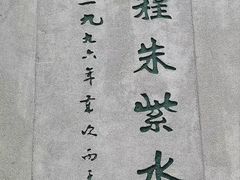 程朱紫水
一九九六年岁次丙子